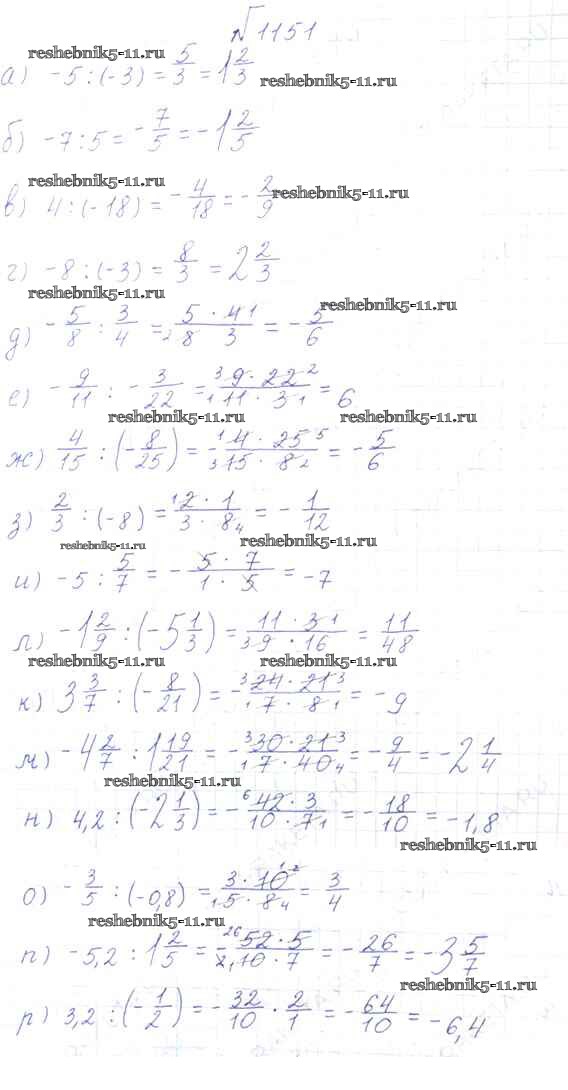 №1151
reshebnik5-11.ru
а) -5 : (-3) = 5/3 = 1 2/3
reshebnik5-11.ru
б) -7 : 5 = -7/5 = -1 2/5
reshebnik5-11.ru
в) 4 : (-18) = -4/18 = -2/9
reshebnik5-11.ru
г) -8 : (-3) = 8/3 = 2 2/3
reshebnik5-11.ru
reshebnik5-11.ru
д) -5/8 : 3/4 = 5 · 4 1 / 2 8 3 = -5/6
е) -9/11 : -3/22 = 3 9 · 22 2 / 1 11 · 3 1 = 6
reshebnik5-11.ru
reshebnik5-11.ru
ж) 4/15 : (-8/25) = - 1 4 · 25 5 / 3 15 · 8 2 = -5/6
з) 2/3 : (-8) = 1 2 · 1 / 3 · 8 4 = -1/12
reshebnik5-11.ru
reshebnik5-11.ru
и) -5 : 5/7 = - 5 · 7 / 1 · 5 = -7
л) -1 2/9 : (-5 1/3) = 11 · 3 1 / 3 9 · 16 = 11/48
reshebnik5-11.ru
reshebnik5-11.ru
к) 3 3/7 : (-8/21) = - 3 24 · 21 3 / 1 7 · 8 1 = -9
м) -4 2/7 : 1 19/21 = - 3 30 · 21 3 / 1 7 · 40 4 = -9/4 = -2 1/4
reshebnik5-11.ru
н) 4,2 : (-2 1/3) = - 6 42 · 3 / 10 · 7 1 = -18/10 = -1,8
reshebnik5-11.ru
о) -3/5 : (-0,8) = 3 · 10 2 / 1 5 · 8 4 = 3/4
reshebnik5-11.ru
п) -5,2 : 1 2/5 = - 26 52 · 5 / 2 10 · 7 = -26/7 = -3 5/7
reshebnik5-11.ru
р) 3,2 : (-1/2) = -32/10 · 2/1 = -64/10 = -6,4